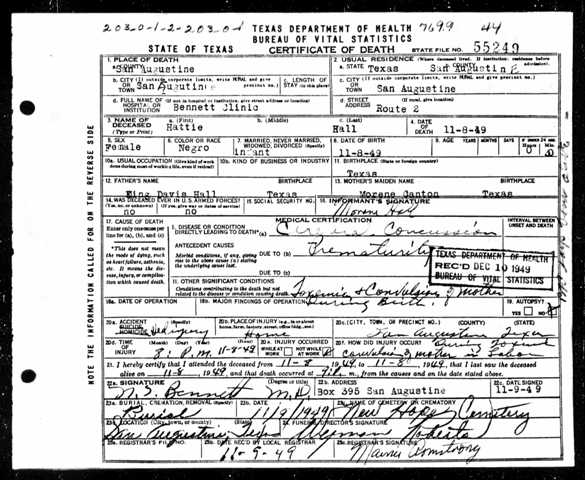 203-0-1-2-203-0-1 TEXAS DEPARTMENT OF HEALTH 7699 44
BUREAU OF VITAL STATISTICS
STATE OF TEXAS CERTIFICATE OF DEATH STATE FILE NO. 55249
1. PLACE OF DEATH 2. USUAL RESIDENCE (Where deceased lived, If institution: residence before admission)
a. COUNTY San Augustine a. STATE Texas b. COUNTY San Augustine
b. CITY (If outside corporate limits, write RURAL and give precinct no.) c. LENGTH OF STAY (in this place) c. CITY (If outside corporate limits, write RURAL and give precinct no.)
OR TOWN San Augustine OR TOWN San Augustine
d. FULL NAME OF HOSPITAL OR INSTITUTION (If not in hospital or institution, give street address or location) Bennett Clinic d. STREET ADDRESS Route 2
3. NAME OF DECEASED (Type or Print) a. (First) Hattie b. (Middle) c. (Last) Hall 4. DATE OF DEATH 11-8-49
5. SEX Female 6. COLOR OR RACE Negro 7. MARRIED, NEVER MARRIED, WIDOWED, DIVORCED (Specify) Infant 8. DATE OF BIRTH 11-8-49 9. AGE YEARS MONTHS DAYS
10a. USUAL OCCUPATION 10b. KIND OF BUSINESS OR INDUSTRY 11. BIRTHPLACE (State or foreign country) Texas
12. FATHER'S NAME 13. MOTHER'S MAIDEN NAME
King Davis Hall Texas Morene Canton Texas
14. WAS DECEASED EVER IN U.S. ARMED FORCES? 15. SOCIAL SECURITY NO. 16. INFORMANT'S SIGNATURE
no no Morene Hall
17. CAUSE OF DEATH MEDICAL CERTIFICATION INTERVAL BETWEEN ONSET AND DEATH
Enter only one cause per line for (a), (b), and (c)
I. DISEASE OR CONDITION DIRECTLY LEADING TO DEATH* (a) Concussion
*This does not mean the mode of dying, such as heart failure, asthenia, etc. It means the disease, injury, or complication which caused death.
ANTECEDENT CAUSES
Morbid conditions, if any, giving rise to the above cause (a) stating the underlying cause last.
DUE TO (b) Prematurity
DUE TO (c)
TEXAS DEPARTMENT OF HEALTH
REC'D DEC 10 1949
BUREAU OF VITAL STATISTICS
II. OTHER SIGNIFICANT CONDITIONS
Conditions contributing to the death but not related to the disease or condition causing death.
Toxemia + Convulsion of mother during Birth
18a. DATE OF OPERATION 18b. MAJOR FINDINGS OF OPERATION 19. AUTOPSY? YES NO
20a. ACCIDENT SUICIDE HOMICIDE 20b. PLACE OF INJURY Home 20c. (CITY, TOWN, OR PRECINCT NO.) (COUNTY) (STATE)
San Augustine Texas
20d. TIME OF INJURY (Month) (Day) (Year) (Hour) 8: P.M. 11-8-49 20e. INJURY OCCURRED WHILE AT WORK NOT WHILE AT WORK 20f. HOW DID INJURY OCCUR?
convulsion of mother in Labor
21. I hereby certify that I attended the deceased from 11-8 1949, to 11-8 1949, that I last saw the deceased
alive on 11-8 1949, and that death occurred at m., from the causes and on the date stated above.
22a. SIGNATURE (Degree or title) 22b. ADDRESS 22c. DATE SIGNED
Bennett M.D. Box 395 San Augustine 11-9-49
23a. BURIAL, CREMATION, REMOVAL (Specify) Burial 23b. DATE 11/9/1949 23c. NAME OF CEMETERY OR CREMATORY New Hope Cemetery
23d. LOCATION (City, town, or county) (State) San Augustine Texas 24. FUNERAL DIRECTOR'S SIGNATURE Roberts
25a. REGISTRAR'S FILE NO. 25b. DATE REC'D BY LOCAL REGISTRAR 11-9-49 25c. REGISTRAR'S SIGNATURE Armstrong
NOTE THE INFORMATION CALLED FOR ON THE REVERSE SIDE